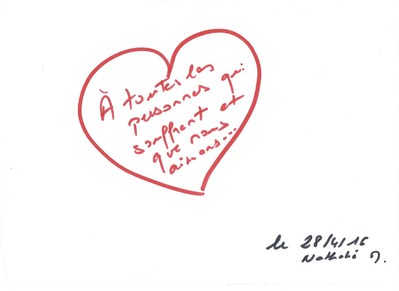 À toutes les
personnes qui
souffrent et
que nous
aimons...
le 28/4/16
Nathalie M.